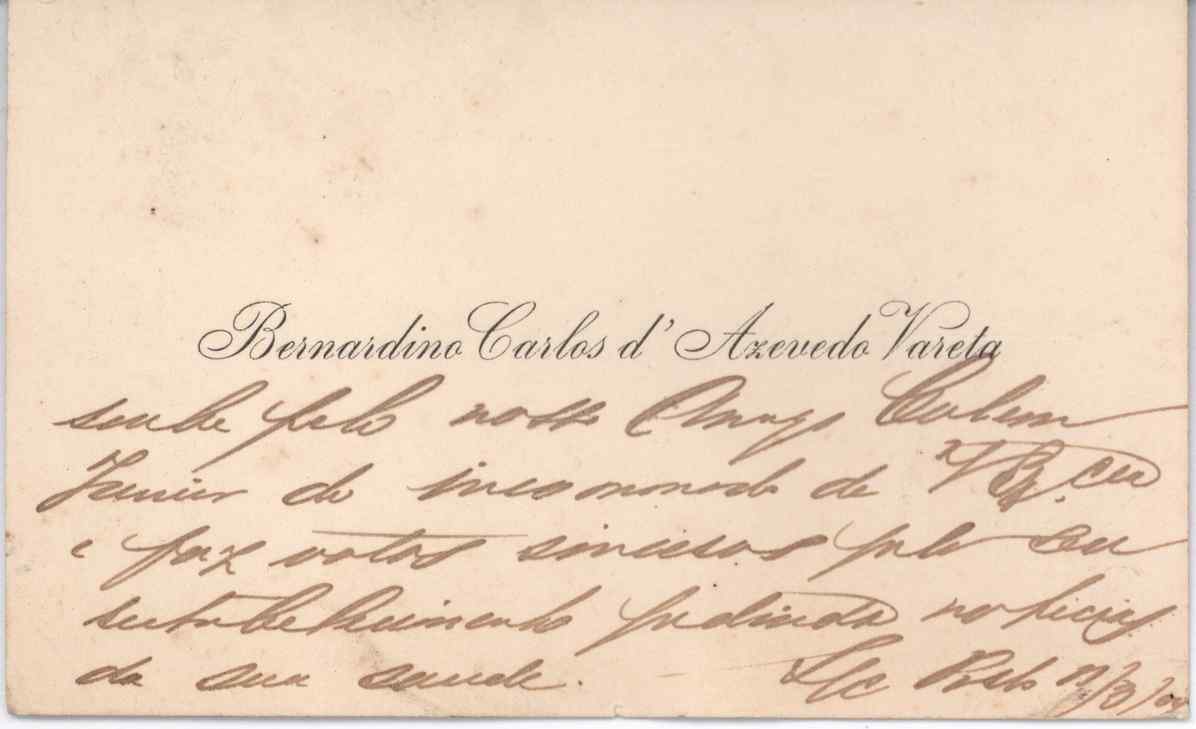 Bernardino Carlos d'Azevedo Vareta
soube pelo nosso Amigo
Junior do incommodo de V. Ex.cia
e faz votos sinceros pelo seu
restabelecimento pedindo noticias
da sua saude.